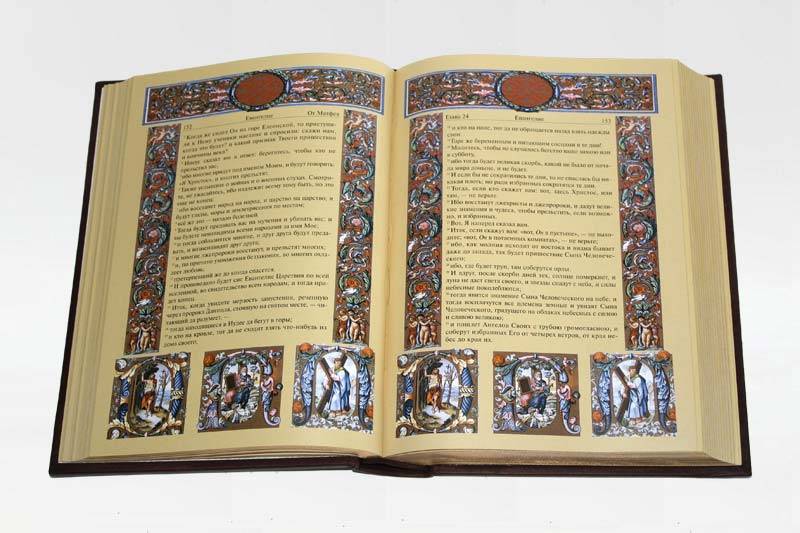 152 Евангелие От Матфея
³Когда же сидел Он на горе Елеонской, то приступи-
ли к Нему ученики наедине и спросили: скажи нам,
когда это будет? и какой признак Твоего пришествия
и кончины века?
⁴Иисус сказал им в ответ: берегитесь, чтобы кто не
прельстил вас;
⁵ибо многие придут под именем Моим, и будут говорить:
«Я Христос», и многих прельстят.
⁶Также услышите о войнах и о военных слухах. Смотри-
те, не ужасайтесь, ибо надлежит всему тому быть, но это
еще не конец:
⁷ибо восстанет народ на народ, и царство на царство; и
будут глады, моры и землетрясения по местам;
⁸всё же это — начало болезней.
⁹Тогда будут предавать вас на мучения и убивать вас; и
вы будете ненавидимы всеми народами за имя Мое;
¹⁰и тогда соблазнятся многие, и друг друга будут преда-
вать, и возненавидят друг друга;
¹¹и многие лжепророки восстанут, и прельстят многих;
¹²и, по причине умножения беззакония, во многих охла-
деет любовь;
¹³претерпевший же до конца спасется.
¹⁴И проповедано будет сие Евангелие Царствия по всей
вселенной, во свидетельство всем народам; и тогда при-
дет конец.
¹⁵Итак, когда увидите мерзость запустения, реченную
через пророка Даниила, стоящую на святом месте, — чи-
тающий да разумеет, —
¹⁶тогда находящиеся в Иудее да бегут в горы;
¹⁷и кто на кровле, тот да не сходит взять что-нибудь из
дома своего;
Глава 24 Евангелие 153
¹⁸и кто на поле, тот да не обращается назад взять одежды
свои.
¹⁹Горе же беременным и питающим сосцами в те дни!
²⁰Молитесь, чтобы не случилось бегство ваше зимою или
в субботу,
²¹ибо тогда будет великая скорбь, какой не было от нача-
ла мира доныне, и не будет.
²²И если бы не сократились те дни, то не спаслась бы ни-
какая плоть; но ради избранных сократятся те дни.
²³Тогда, если кто скажет вам: вот, здесь Христос, или
там, — не верьте.
²⁴Ибо восстанут лжехристы и лжепророки, и дадут вели-
кие знамения и чудеса, чтобы прельстить, если возмож-
но, и избранных.
²⁵Вот, Я наперед сказал вам.
²⁶Итак, если скажут вам: «вот, Он в пустыне», — не выхо-
дите; «вот, Он в потаенных комнатах», — не верьте;
²⁷ибо, как молния исходит от востока и видна бывает
даже до запада, так будет пришествие Сына Человечес-
кого;
²⁸ибо, где будет труп, там соберутся орлы.
²⁹И вдруг, после скорби дней тех, солнце померкнет, и
луна не даст света своего, и звезды спадут с неба, и силы
небесные поколеблются;
³⁰тогда явится знамение Сына Человеческого на небе; и
тогда восплачутся все племена земные и увидят Сына
Человеческого, грядущего на облаках небесных с силою
и славою великою;
³¹и пошлет Ангелов Своих с трубою громогласною, и
соберут избранных Его от четырех ветров, от края не-
бес до края их.